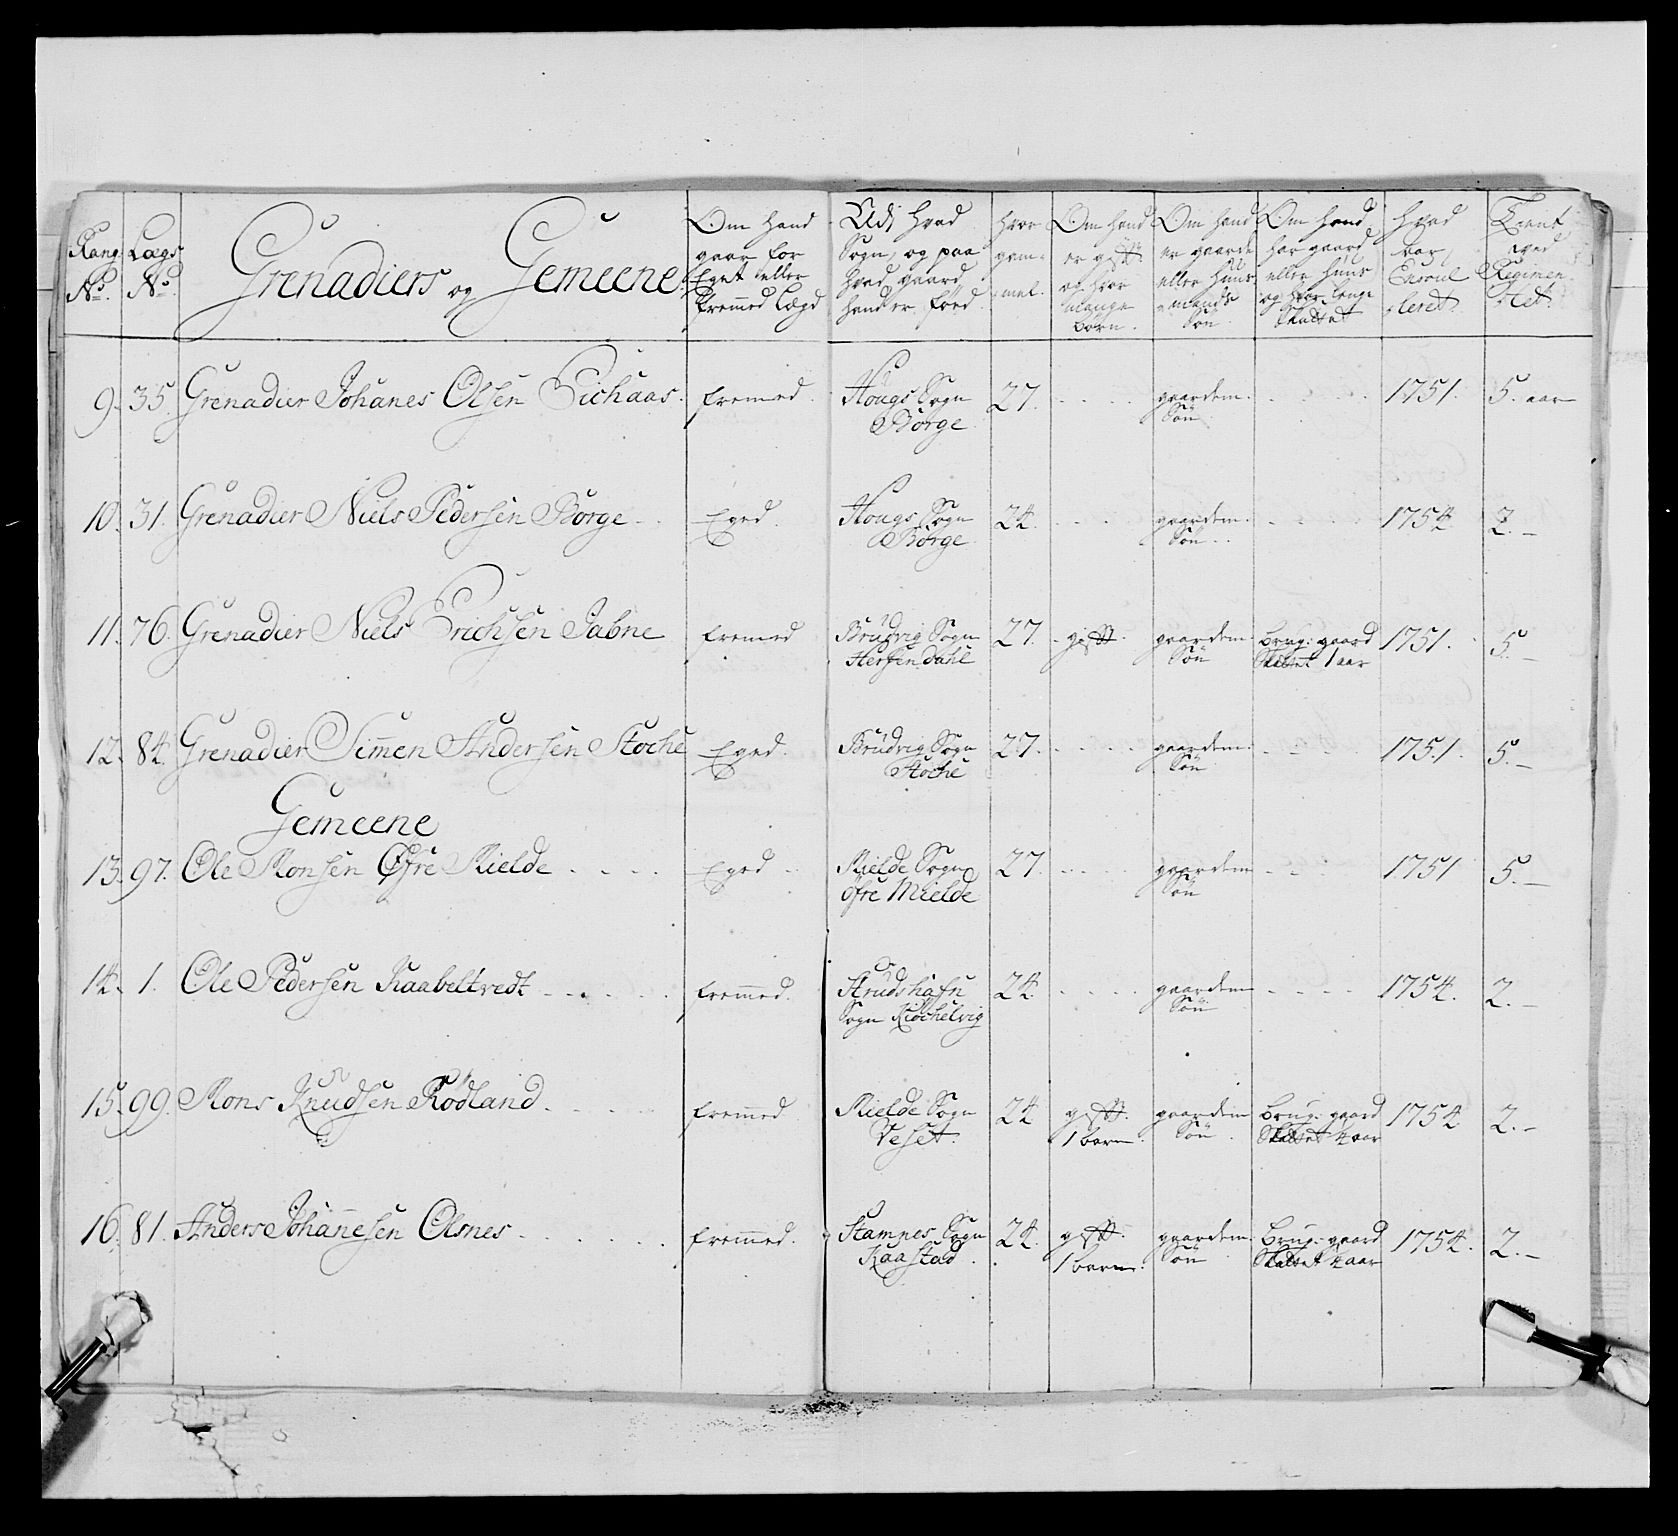 Rang No. | Lægs No. | Grenadiers og Gemeene | Om Hand gaar for Eget eller Fremmed Lægd | Udj Hvad Sogn, og paa Hvad gaard hand er föed | Hvor gam= mel. | Om hand er gift og hvor mange börn. | Om hand er gaards eller huus mands Sön | Om hand har gaard eller huus og hvor lenge Skattet | Hvad aar Enroul leret | Tient ved Regimen tet
9. 35. Grenadier Johanes Olsen Eichaas. fremed. Hougs Sogn Börge 27. gaardem. Sön 1751. 5. aar
10. 31. Grenadier Niels Pedersen Börge Eged. Hougs Sogn Börge 24 gaardem. Sön 1754 2.
11. 76. Grenadier Niels Erichsen Jabne fremed Brudvig Sogn Hersendahl 27. gift. gaardem. Sön brug: gaard Skattet 1 aar 1751. 5.
12. 84. Grenadier Simen Andersen Stoche Eged. Brudvig Sogn Stoche 27. gaardem. Sön 1751. 5.
Gemeene
13. 97. Ole Monsen Öfre Mielde Eged Mielde Sogn öfre Mielde 27. gaardem Sön 1751 5.
14. 1. Ole Pedersen Kaabeltvedt fremmed. Strudshafn Sogn Kiöchelvig 24 gaardem Sön 1754. 2.
15. 99. Mons Knudsen Rödland fremmed Mielde Sogn Veset 24 gift. 1 barn. gaardem Sön brug: gaard Skattet 4 aar 1754 2.
16. 81. Anders Johannesen Olsnes fremmed. Stampnes Sogn Kaastad 24. gift. 1 barn. gaardem. Sön brug: gaard Skattet 4 aar 1754. 2.